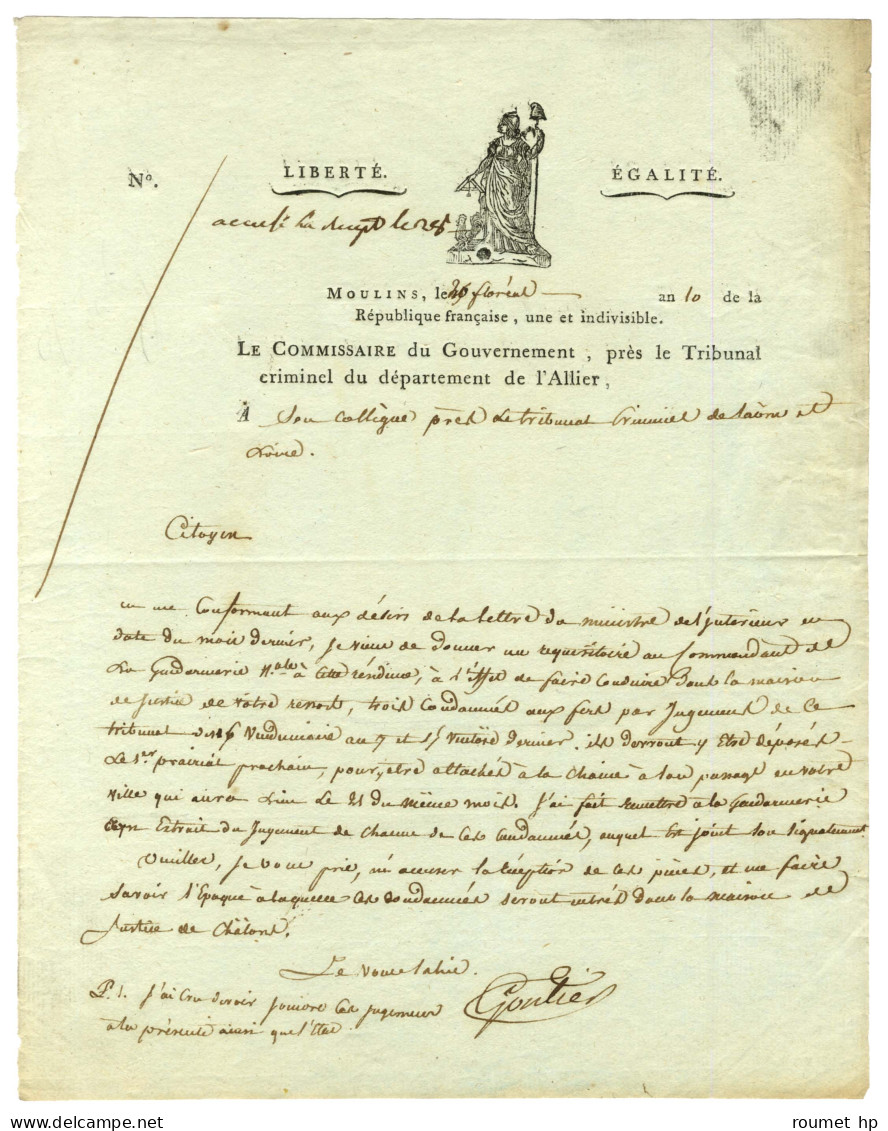 LIBERTÉ. ÉGALITÉ.
Nº.
accusé la le 25
MOULINS, le 26 floréal an 10 de la
République française, une et indivisible.
LE COMMISSAIRE du Gouvernement, près le Tribunal
criminel du département de l'Allier,
A Son collègue près le tribunal Criminel de Saône et
Loire.
Citoyen
en me Conformant aux désirs de la lettre du ministre de l'Interieur en
date du mois dernier, je viens de donner un requisitoire au Commandant de
la Gendarmerie N.ale à cette résidence, à l'Effet de faire Conduire dans la maison
de Justice de votre ressort, trois Condamnés aux fers par Jugement de Ce
tribunal des Vendemiaire an 9 et 17 Ventôse dernier. ils devront y Etre déposés
le 1er prairial prochain, pour être attachés à la chaine à son passage en votre
Ville qui aura lieu le 21 du même mois. J'ai fait remettre à la Gendarmerie
Extrait du Jugement de chacun de ces Condamnés, auquel Est joint son signalement
Veuillez, je vous prie, m'accuser la réception de ces pièces, et me faire
savoir l'Epoque à laquelle ces condamnés seront entrés dans la maison de
Justice de Châlons.
Je vous salue.
Gontier
P.S. J'ai Cru devoir joindre ces jugemens
à la présente ainsi que l'Etat.
roumet hp
delcampe.net